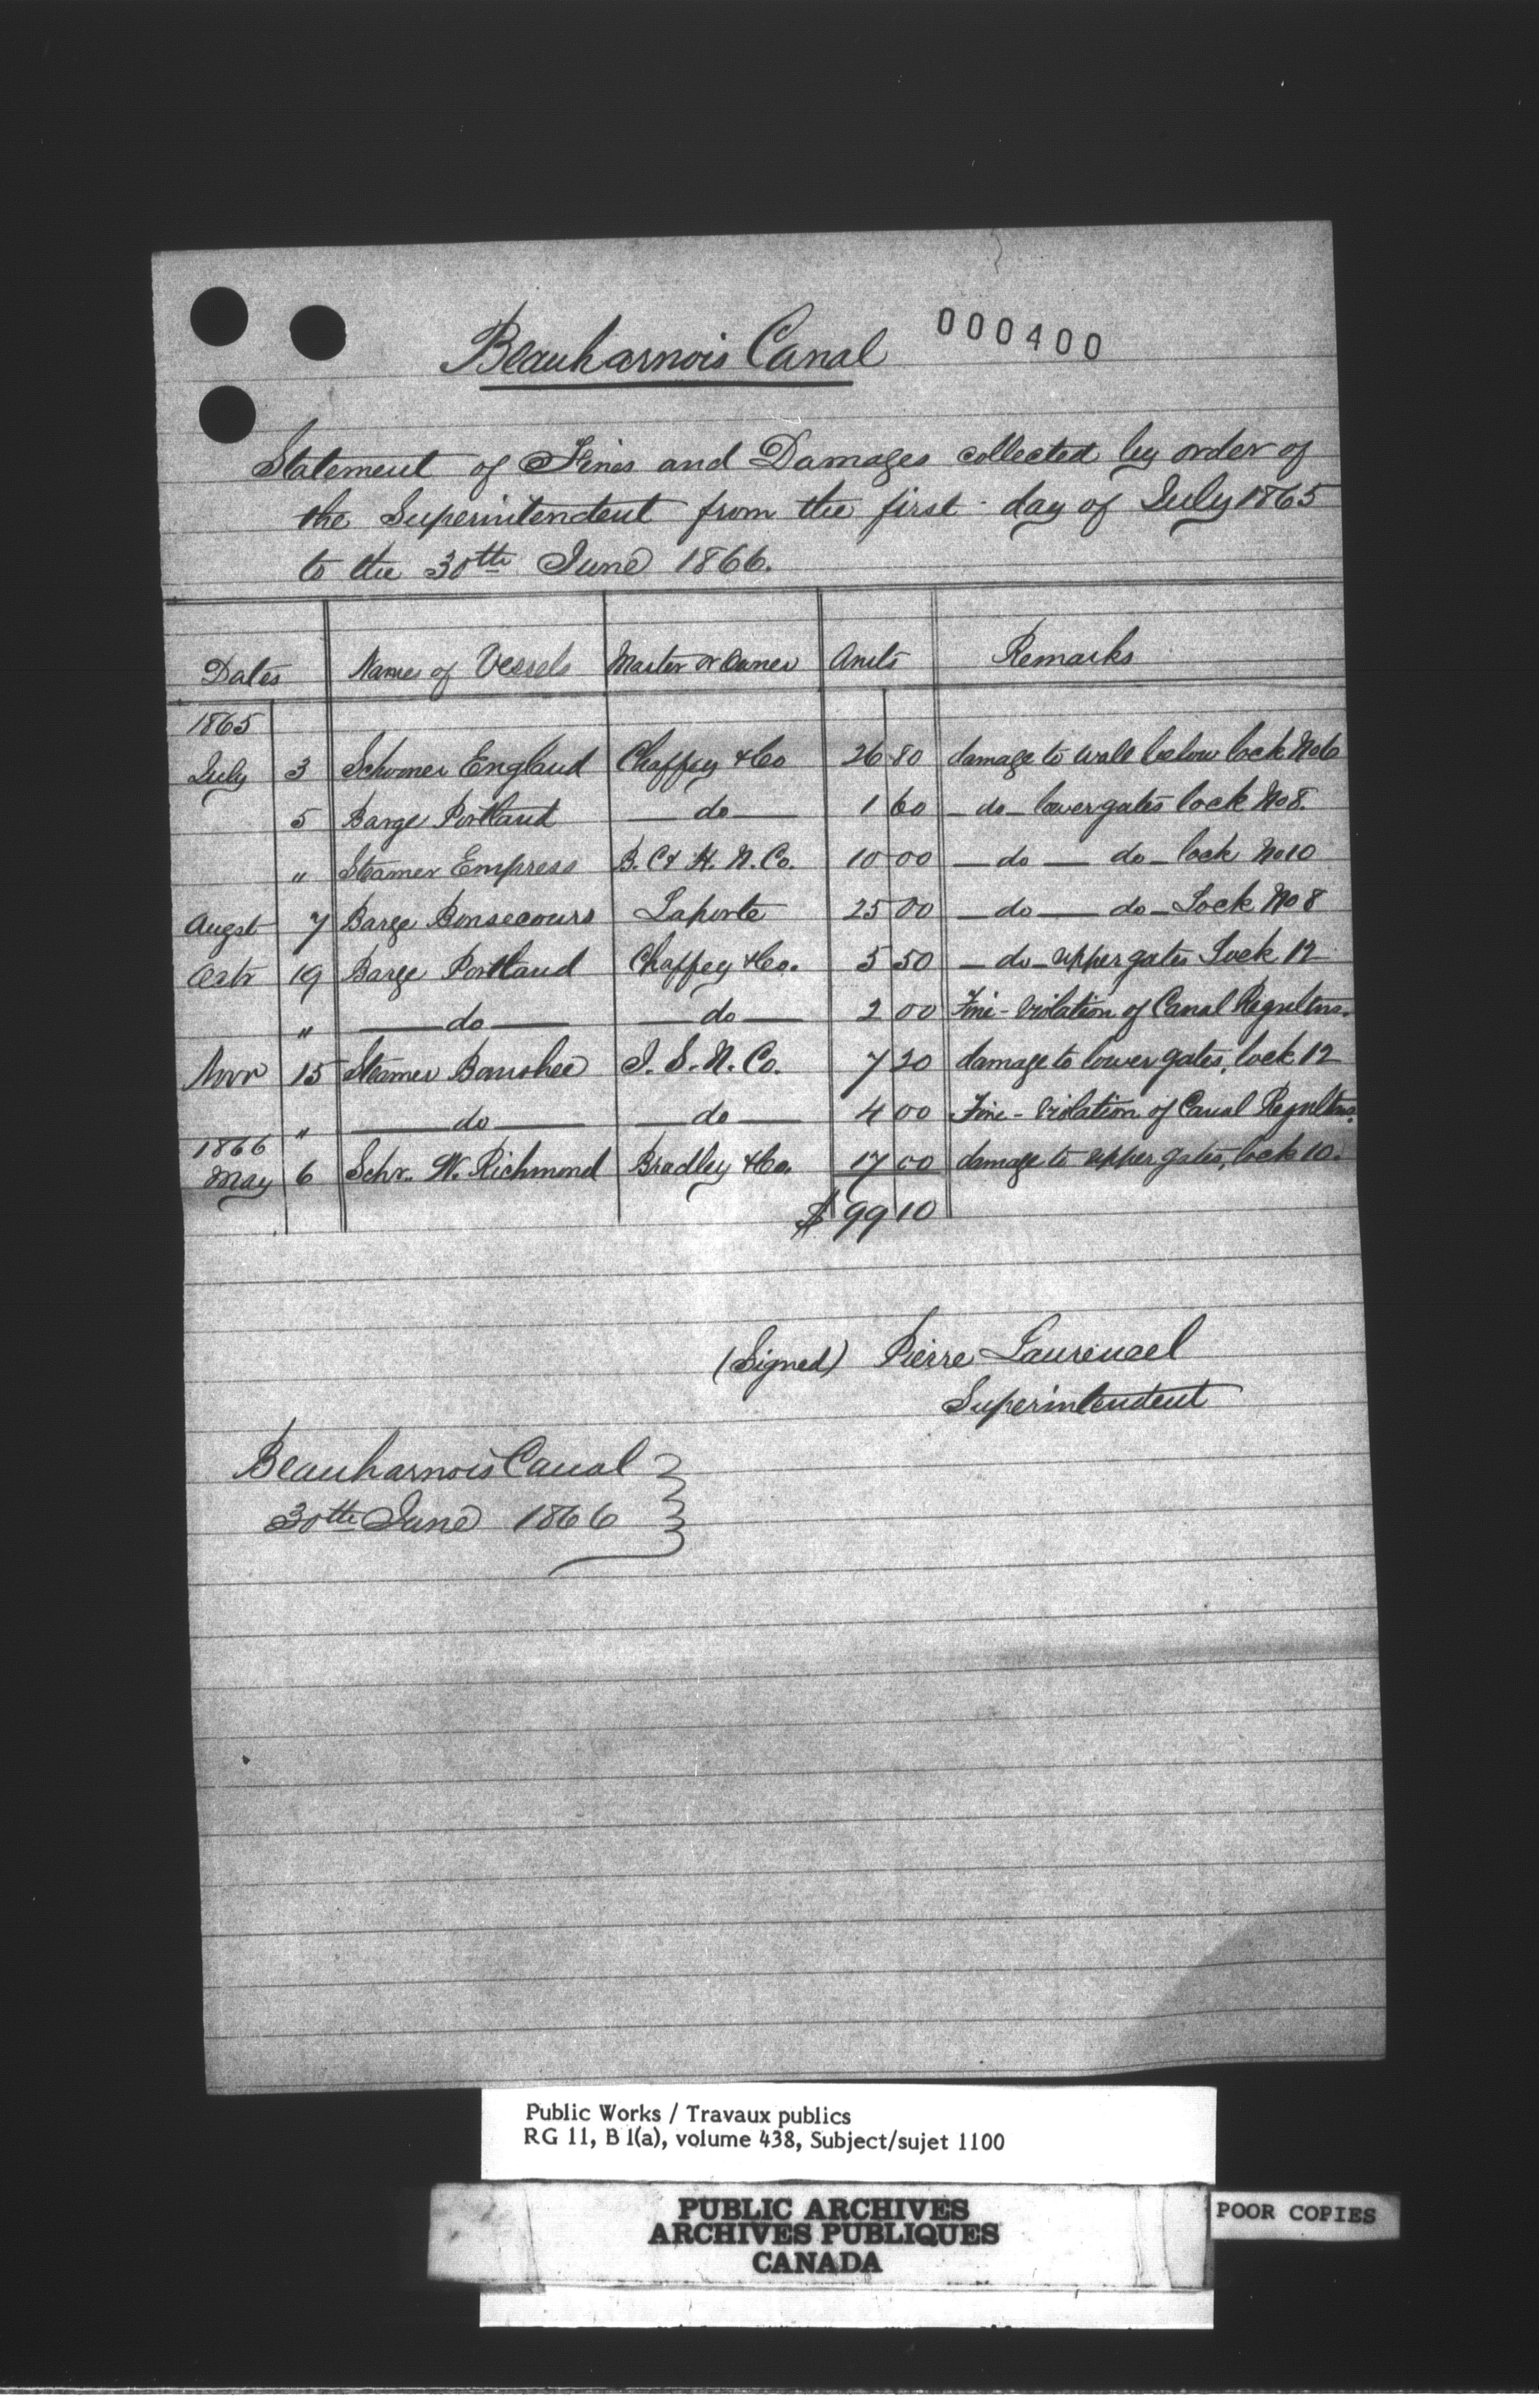 000400
Beauharnois Canal
Statement of Fines and Damages collected by order of
the Superintendent from the first day of July 1865
to the 30th June 1866.
Dates Names of Vessels Master or Owner Amts Remarks
1865
July 3 Schooner England Chaffey & Co 26 80 damage to wall below lock No 6
5 Barge Portland — do — 1 60 — do — lower gates lock No 8.
" Steamer Empress B. C & H. N. Co. 10 00 — do — do — lock No 10
Augst 7 Barge Bonsecours Laporte 25 00 — do — do — Lock No 8
Octr 19 Barge Portland Chaffey & Co. 5 50 — do — upper gates Lock 12
" — do — — do — 2 00 Fine - Violation of Canal Regultns.
Novr 15 Steamer Banshee I. S. N. Co. 7 20 damage to lower gates, lock 12
" — do — — do — 4 00 Fine - Violation of Canal Regultns.
1866
May 6 Schr. W. Richmond Bradley & Co. 17 00 damage to upper gates, lock 10.
$ 99 10
(Signed) Pierre
Superintendent
Beauharnois Canal
30th June 1866
Public Works / Travaux publics
RG 11, B 1(a), volume 438, Subject/sujet 1100
PUBLIC ARCHIVES
ARCHIVES PUBLIQUES
CANADA
POOR COPIES